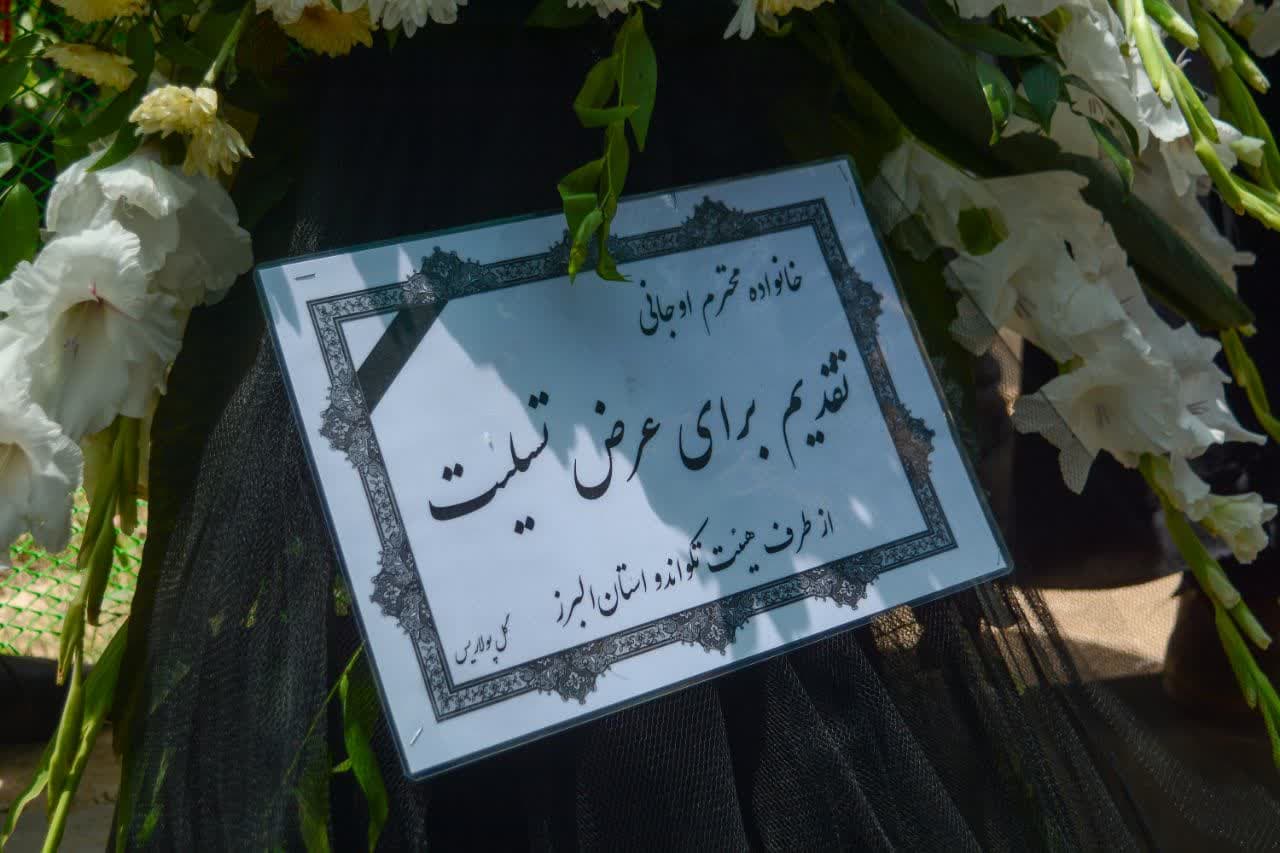 خانواده محترم اوجانی
تقدیم برای عرض تسلیت
از طرف هیئت تکواندو استان البرز
گل پولاریس